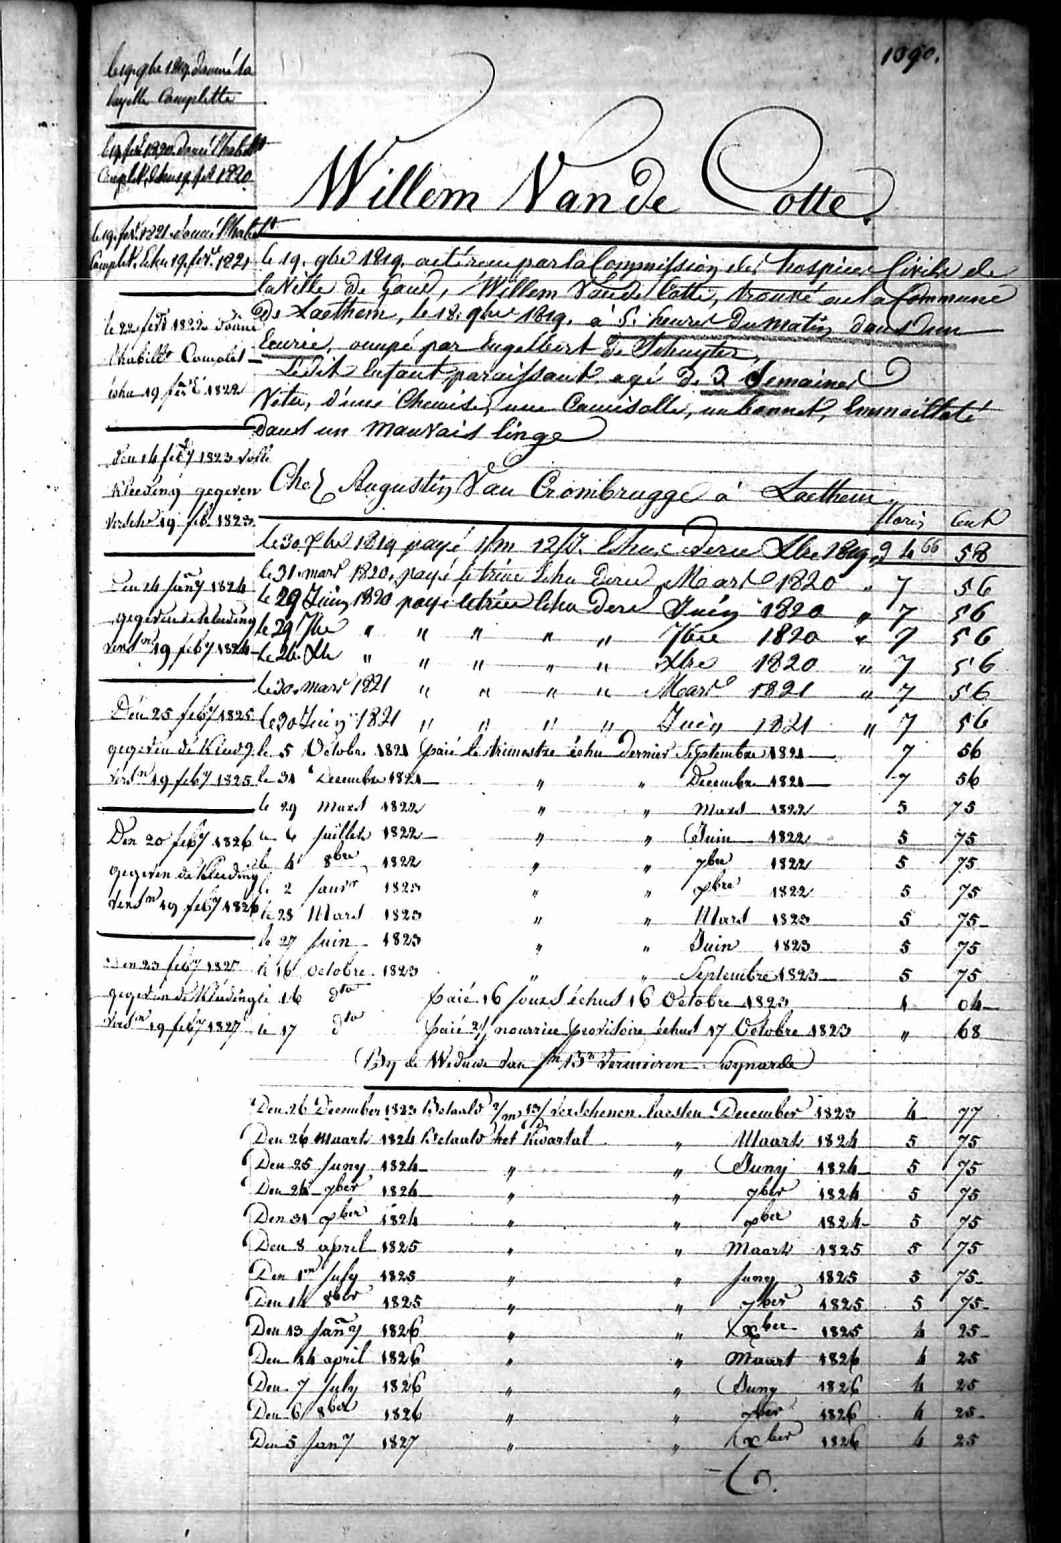 1090.
le 19 9bre 1819 donné la
layette Complette
le 19 fevr 1820 donné l'habillt
Complet, échu 19 fevr 1820
le 19 fevr 1821 donné l'habillt
Complet, échu 19 fevr 1821
le 22 fevr 1822 Donné
l'habillt Complet
échu 19 fevr 1822
Den 14 feby 1823 volle
Kleeding gegeven
versch. 19 feb. 1823
Den 24 Jany 1824
gegeven de kleeding
versn 19 feby 1824
Den 25 feby 1825
gegeven de kleedg.
versn 19 feby 1825
Den 20 feby 1826
gegeven de Kleeding
versn 19 feby 1826
Den 23 feby 1827
gegeven de Kleeding
versn 19 feby 1827
Willem Van de Cotte.
le 19. 9bre 1819. a été reçu par la Commission des hospices Civils de
la Ville de Gand, Willem Van de Cotte, trouvé au la Commune
de Laethem, le 18. 9bre 1819. à 5. heures du matin dans une
écurie, occupé par Engelbert De Schuyter,
Ledit Enfant paraissant agé de 3 Semaines
Vétu, d'une Chemise, une Camisolle, un bonnet, Emmailloté
dans un mauvais linge
Chez Augustin Van Crombrugge à Laethem
floris Cent
le 30 Xbre 1819 payé 1/m 12/j. Echus dern Xbre 1819 2 4 66 58
le 31 mars 1820 payé le trim Echu dern Mars 1820 " 7 56
le 29 Juin 1820 payé le trim Echu dern Juin 1820 " 7 56
le 29 7bre " " " " " 7bre 1820 " 7 56
le 26 Xbr " " " " " Xbre 1820 " 7 56
le 30 mars 1821 " " " " Mars 1821 " 7 56
le 30 Juin 1821 " " " " Juin 1821 " 7 56
le 5 Octobre 1821 paié le trimestre échu dernier Septembre 1821 7 56
le 31 Decembre 1821 " " Decembre 1821 7 56
le 29 Mars 1822 " " Mars 1822 5 75
le 6 Juillet 1822 " " Juin 1822 5 75
le 4 8bre 1822 " " 7bre 1822 5 75
le 2 Janvr 1823 " " xbre 1822 5 75
le 28 Mars 1823 " " Mars 1823 5 75
le 27 Juin 1823 " " Juin 1823 5 75
le 16 octobre 1823 " " Septembre 1823 5 75
le 16 dto paié 16 jours échus 16 Octobre 1823 1 04
le 17 dto paié nourrice provisoire échus 17 Octobre 1823 " 68
By de Weduwe van Vermeiren
Den 26 December 1823 Betaald 2/m 15/d verschenen laesten December 1823 4 77
Den 26 Maart 1824 Betaald het Kwartal " Maart 1824 5 75
Den 25 Juny 1824 " " Juny 1824 5 75
Den 24 7ber 1824 " " 7ber 1824 5 75
Den 31 xber 1824 " " xber 1824 5 75
Den 8 april 1825 " " Maart 1825 5 75
Den 1n July 1825 " " Juny 1825 5 75
Den 14 8ber 1825 " " 7ber 1825 5 75
Den 13 Jany 1826 " " xber 1825 4 25
Den 14 april 1826 " " Maart 1826 4 25
Den 7 July 1826 " " Juny 1826 4 25
Den 6 8ber 1826 " " 7ber 1826 4 25
Den 5 Jany 1827 " " xber 1826 4 25